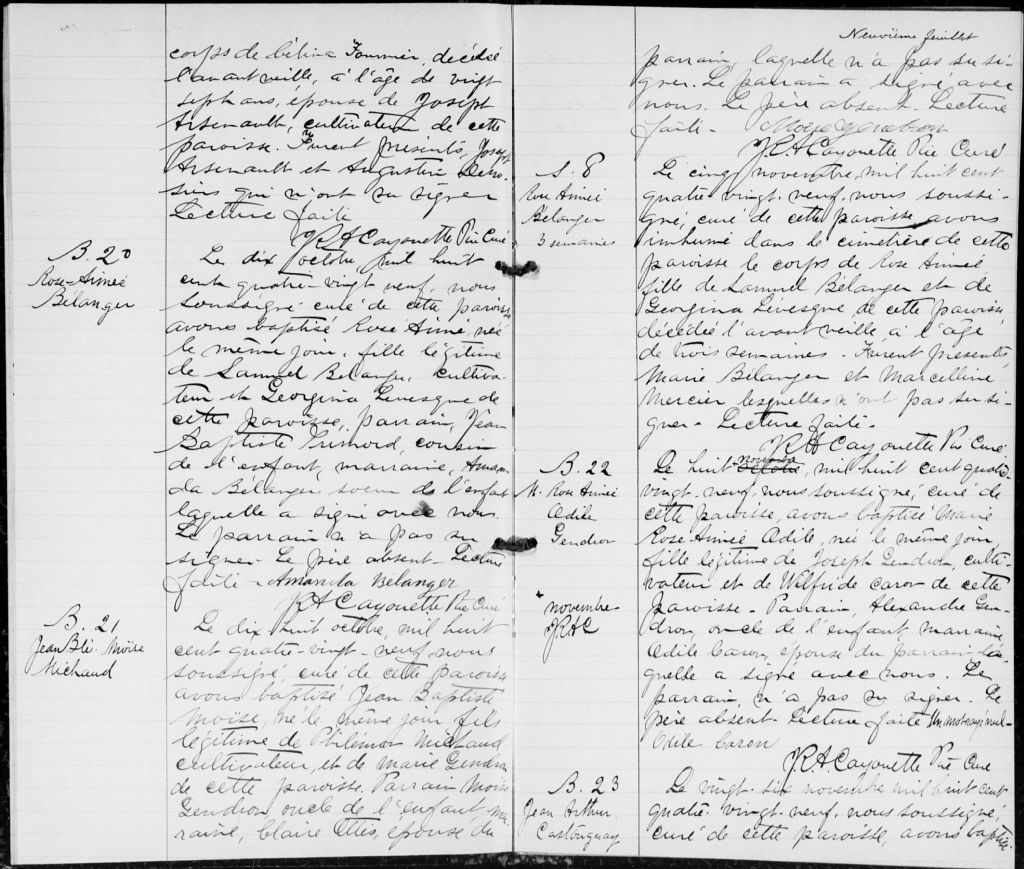 corps de Célina Fournier, décédée
l'avant veille, à l'âge de vingt
sept ans, épouse de Joseph
Arsenault, cultivateur de cette
paroisse. Furent présents, Joseph
Arsenault et Augustin
qui n'ont su signer
Lecture faite
JRA Cayouette Ptre Curé
B. 20
Rose-Aimée
Bélanger
Le dix octobre, mil huit
cent quatre-vingt neuf, nous
soussigné curé de cette paroisse
avons baptisé Rose Aimé, née
le même jour, fille légitime
de Samuel Belanger, cultiva-
teur et Georgina Levesque de
cette paroisse. Parrain, Jean
Baptiste, cousin
de l'enfant, marraine, Aman-
da Bélanger soeur de l'enfant
laquelle a signé avec nous.
Le parrain n'a pas su
signer. Le père absent. Lecture
faite - Amanda Belanger
JRA Cayouette Ptre Curé
B. 21
Jean Bte. Moïse
Michaud
Le dix huit octobre, mil huit
cent quatre-vingt-neuf, nous
soussigné, curé de cette paroisse
avons baptisé Jean Baptiste
Moïse, né le même jour, fils
légitime de Philémon Michaud
cultivateur, et de Marie Gendron
de cette paroisse. Parrain Moïse
Gendron oncle de l'enfant, mar-
raine, Claire Ottis, épouse du
Neuvième feuillet
parrain, laquelle n'a pas su si-
gner. Le parrain a signé avec
nous. Le père absent. Lecture
faite - Moïse Gendron
JRA Cayouette Ptre Curé
S. 8
Rose Aimée
Bélanger
3 semaines
Le cinq novembre, mil huit cent
quatre-vingt-neuf, nous soussi-
gné, curé de cette paroisse avons
inhumé dans le cimetière de cette
paroisse le corps de Rose Aimée
fille de Samuel Bélanger et de
Georgina Lévesque, de cette paroisse,
décédée l'avant veille à l'âge
de trois semaines. Furent présents,
Marie Bélanger et Marcelline
Mercier lesquelles n'ont pas su si-
gner. Lecture faite.
JRA Cayouette Ptre Curé
B. 22
M. Rose Aimée
Odile
Gendron
Le huit novembre octobre, mil huit cent quatre
vingt-neuf, nous soussigné, curé de
cette paroisse, avons baptisé Marie
Rose-Aimée Odile, née le même jour,
fille légitime de Joseph Gendron, culti-
vateur et de Wilfride Caron de cette
paroisse. Parrain, Alexandre Gen-
dron, oncle de l'enfant, marraine,
Odile Caron, épouse du parrain la-
quelle a signé avec nous. Le
parrain, n'a pas su signer. Le
père absent. Lecture faite Un mot rayé nul.
Odile Caron
JRA Cayouette Ptre Curé
* novembre
JRAC
B. 23
Jean Arthur
Castonguay
Le vingt-six novembre mil huit cent
quatre-vingt-neuf, nous soussigné,
curé de cette paroisse, avons baptisé